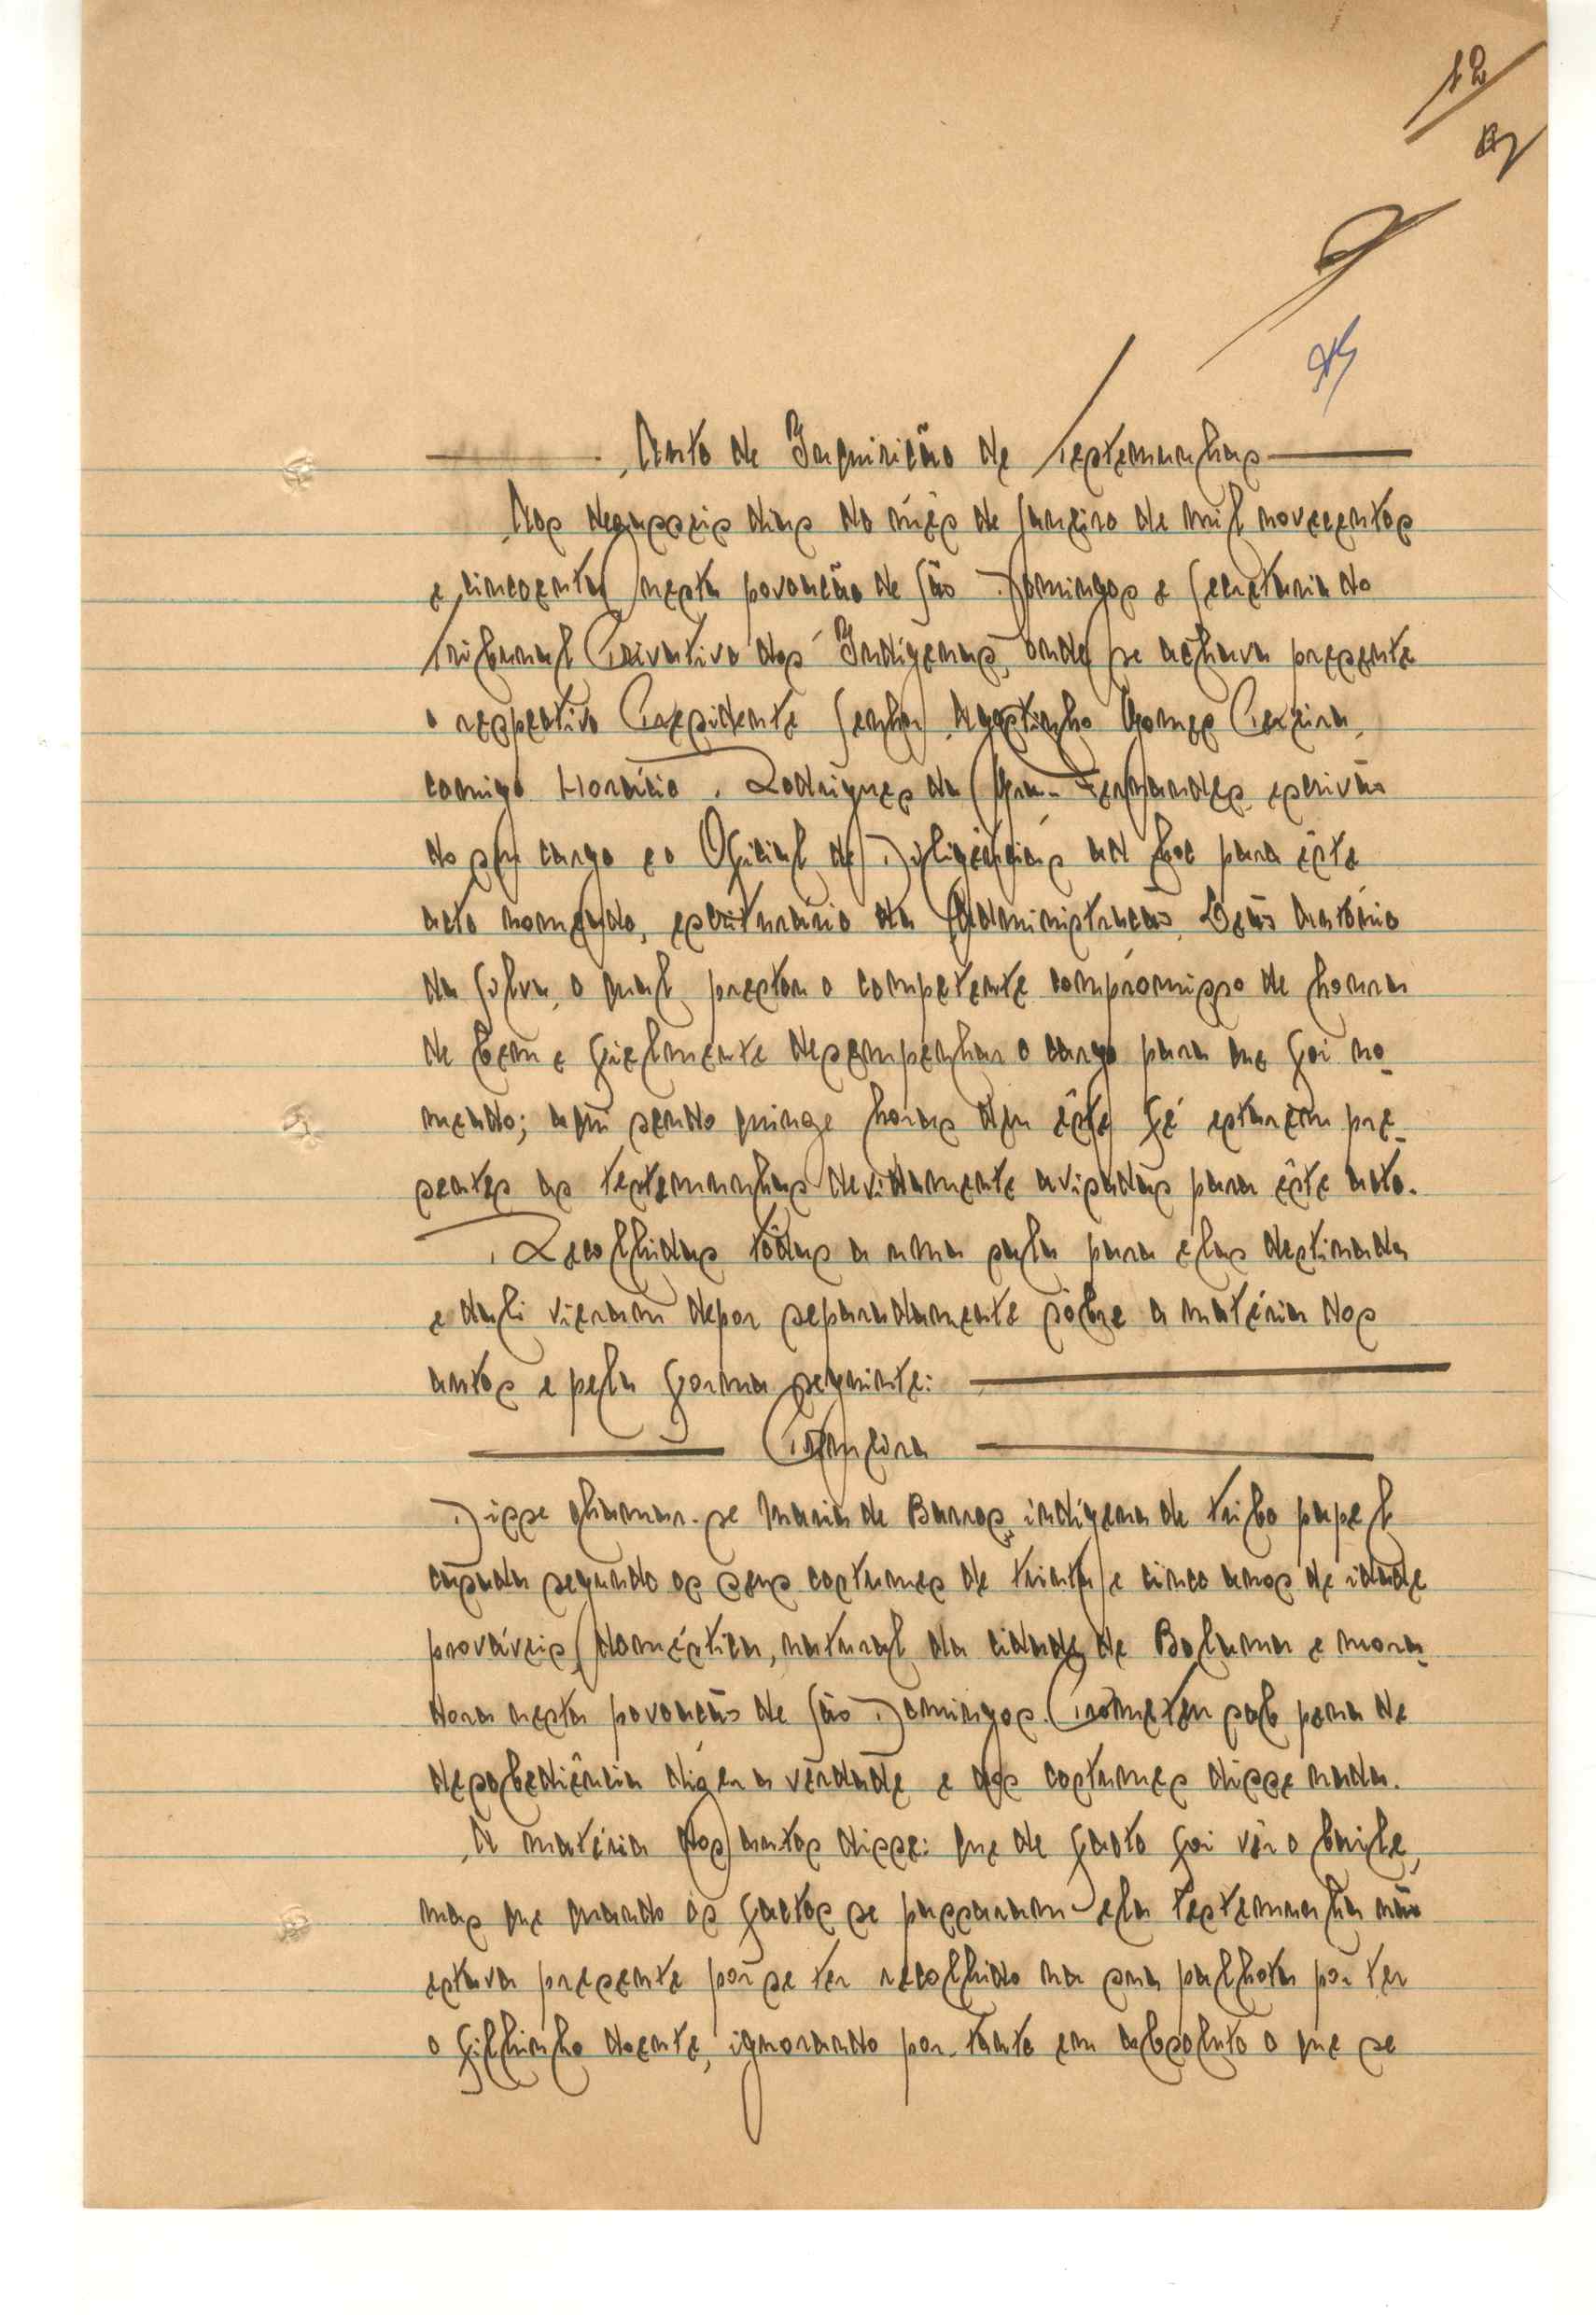 12
Auto de Inquirição de Testemunhas
Aos dezasseis dias do mês de Janeiro de mil novecentos
e cincoenta nesta povoação de São Domingos e Secretaria do
Tribunal Privativo dos Indígenas, onde se achava presente
o respectivo Presidente Senhor Agostinho Gomes Pereira,
comigo Horácio Rodrigues da Fernandes escrivão
do seu cargo e o Oficial de Diligências ad hoc para êste
acto nomeado, escriturário da Administração, António
da Silva, o qual prestou o competente compromisso de honra
de bem e fielmente desempenhar o cargo para que foi no-
meado; aqui sendo quinze horas deu êste fé estarem pre-
sentes as testemunhas devidamente avisadas para êste acto.
Recolhidas tôdas a uma sala para elas destinada
e dali vieram depor separadamente sôbre a matéria dos
autos e pela forma seguinte:
Primeira
Disse chamar-se Maria de Barros, indígena de tribo papel
casada segundo os seus costumes de trinta e cinco anos de idade
prováveis, doméstica, natural da cidade de Bolama e mora-
dora nesta povoação de São Domingos. Prometeu sob pena de
desobediência dizer a verdade e dos costumes disse nada.
A matéria dos autos disse: que de facto foi vêr o baile,
mas que quando os factos se passaram ela testemunha não
estava presente por se ter recolhido na sua palhota por ter
o filhinho doente, ignorando por-tanto em absoluto o que se